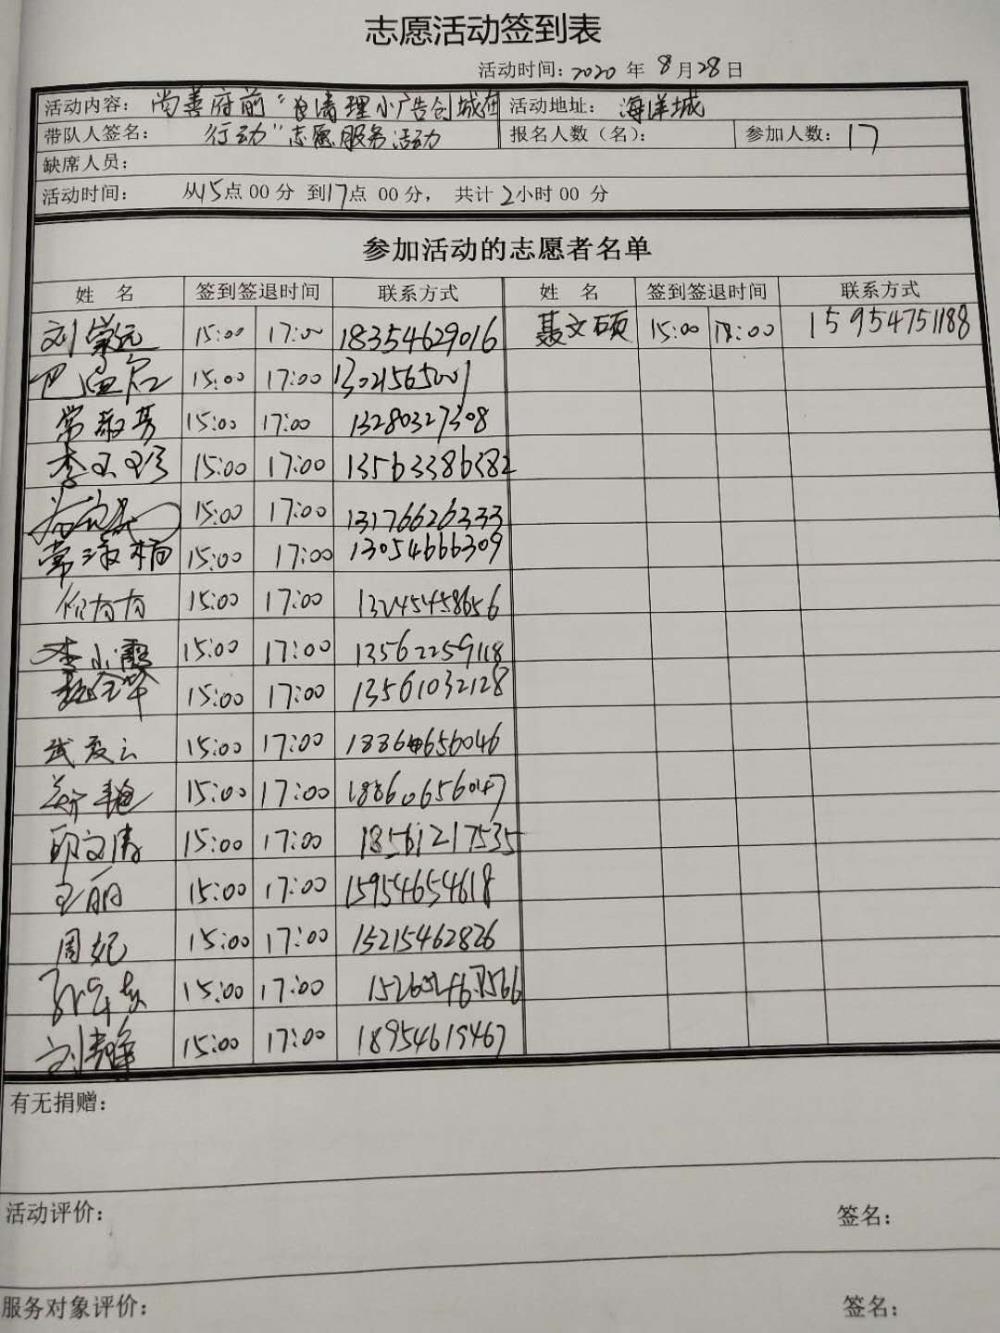 志愿活动签到表
活动时间：2020 年 8 月 28 日
活动内容： 尚善府前“ 清理小广告创城 活动地址： 海洋城
带队人签名： 行动”志愿服务活动 报名人数（名）： 参加人数：17
缺席人员：
活动时间： 从15点 00 分 到17点 00 分， 共计 2小时 00 分
参加活动的志愿者名单
姓 名 签到签退时间 联系方式 姓 名 签到签退时间 联系方式
刘荣远 15:00 17:00 18354629016 聂文硕 15:00 15954751188
15:00 17:00 13021565001
常敬芳 15:00 17:00 13280327308
李玉珍 15:00 17:00 13563386382
15:00 17:00 13176626333
常淑楠 15:00 17:00 13054666309
15:00 17:00 13245458656
李小霞 15:00 17:00 13562259118
15:00 17:00 13561032128
武爱云 15:00 17:00
15:00 17:00 18860656047
邱文涛 15:00 17:00 18561217535
王丽 15:00 17:00 15954654618
周妃 15:00 17:00 15215462826
15:00 17:00
刘清峰 15:00 17:00 18954619467
有无捐赠：
活动评价： 签名：
服务对象评价： 签名：